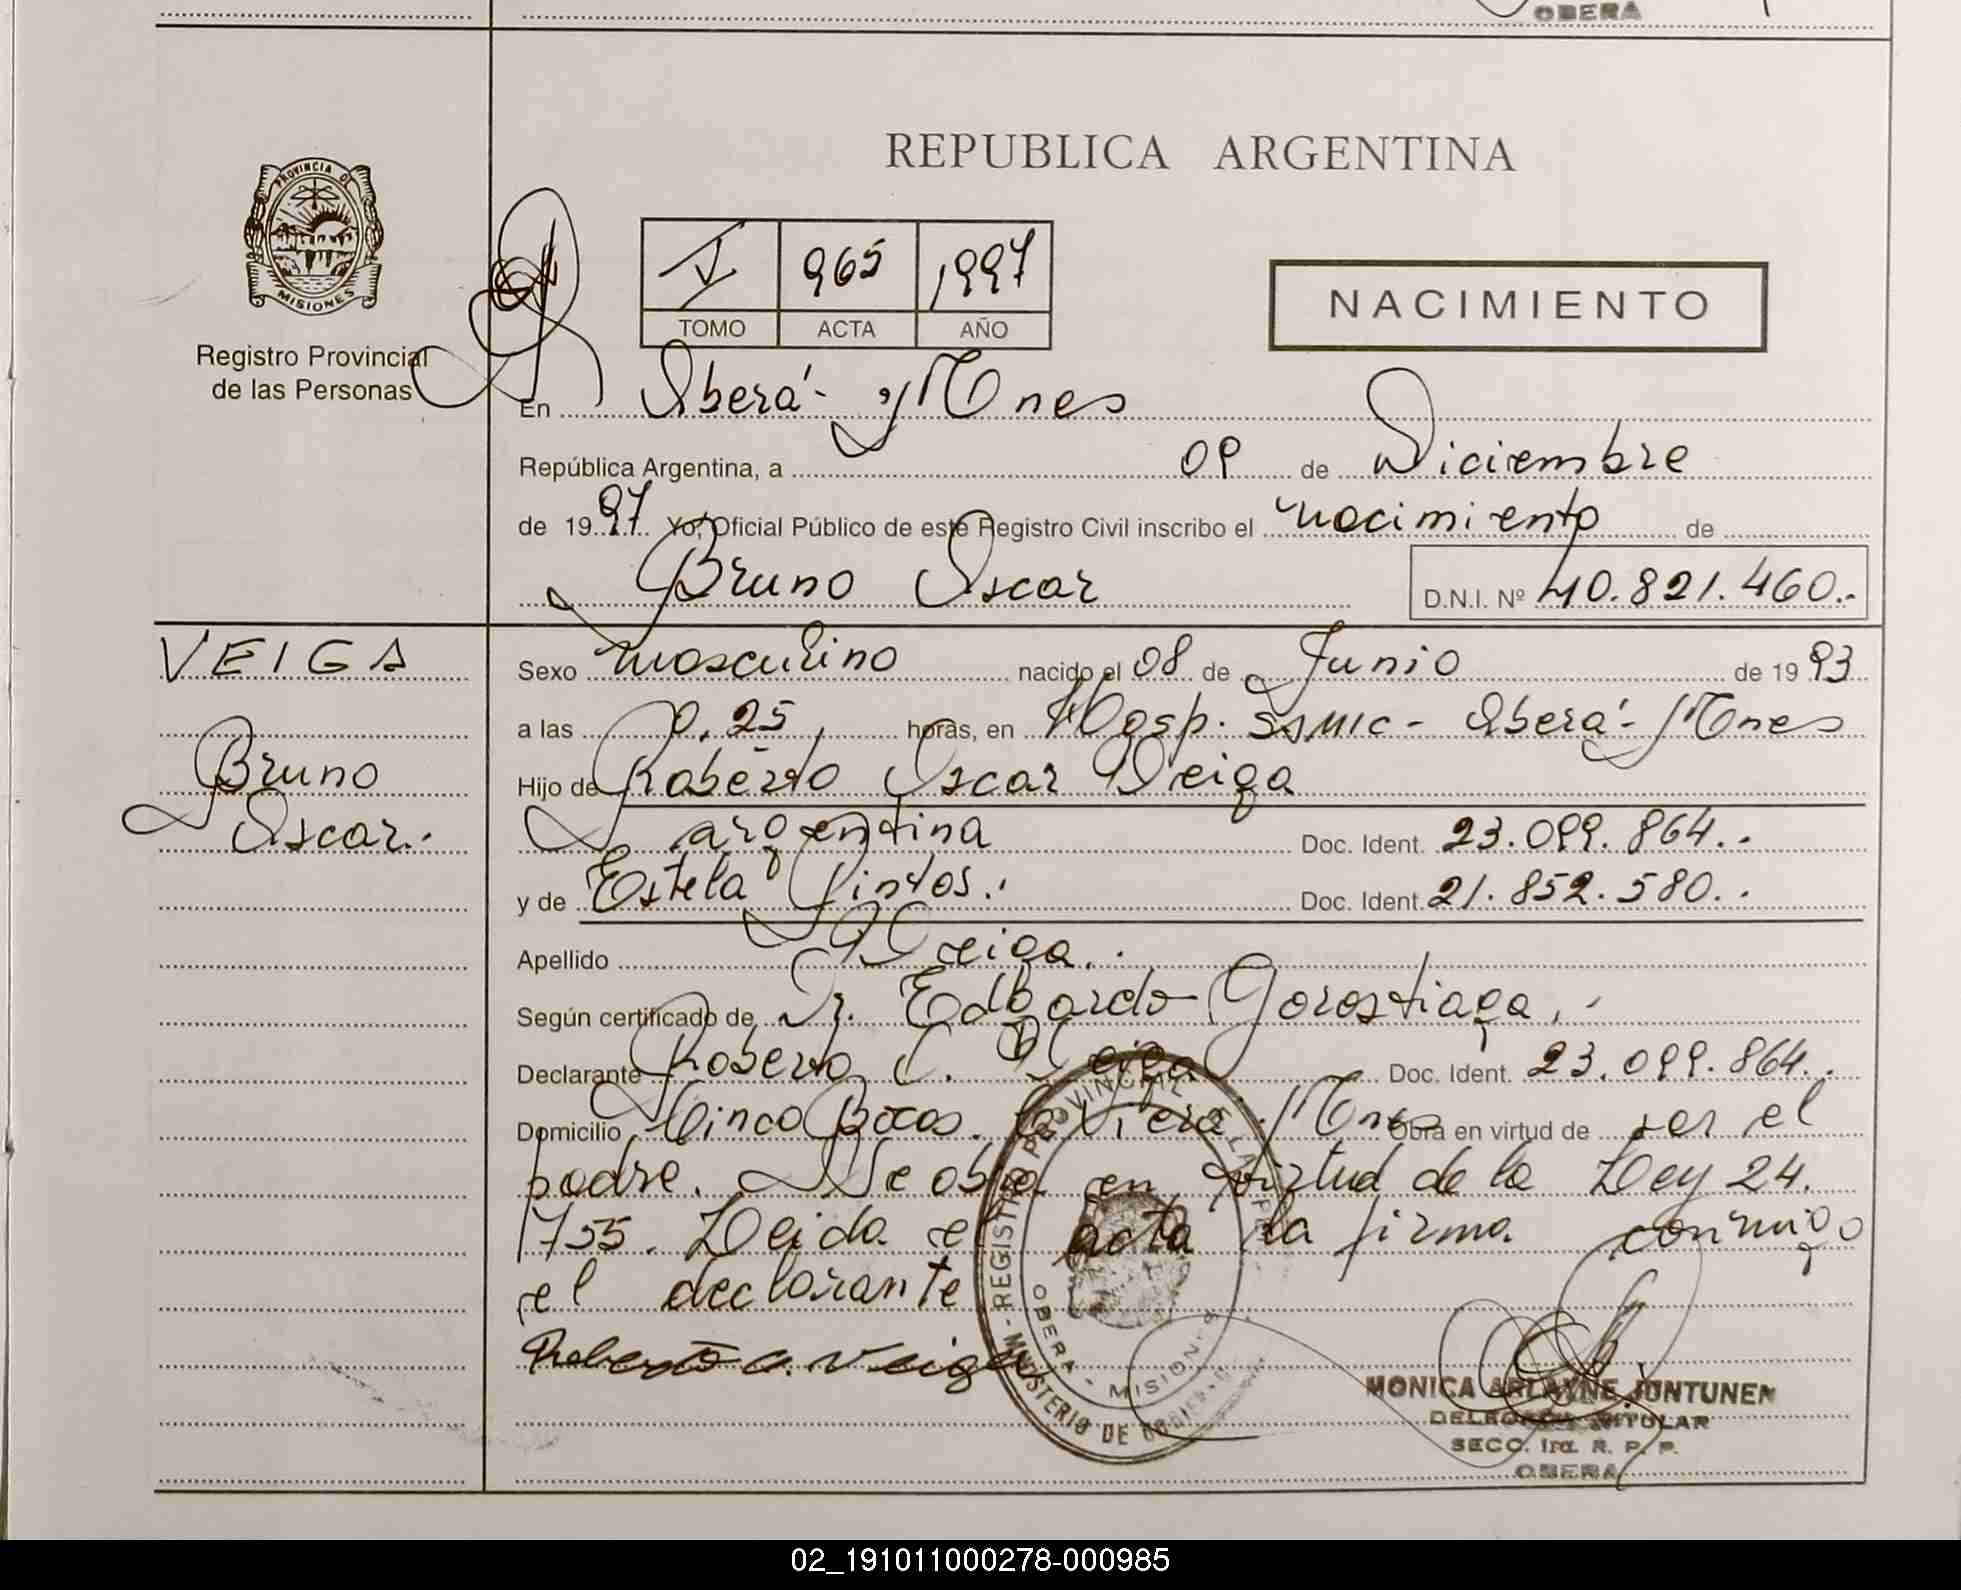 OBERA
REPUBLICA ARGENTINA
PROVINCIA DE
MISIONES
Registro Provincial
de las Personas
I 965 1997
TOMO ACTA AÑO
NACIMIENTO
En Oberá - Mnes
República Argentina, a 09 de Diciembre
de 1997 Yo, Oficial Público de este Registro Civil inscribo el nacimiento de
Bruno Oscar D.N.I. Nº 40.821.460.-
VEIGA
Bruno
Oscar.
Sexo masculino nacido el 08 de Junio de 1993
a las 0.25 horas, en Hosp. SAMIC - Oberá - Mnes
Hijo de Roberto Oscar Veiga
argentina Doc. Ident. 23.099.864.-
y de Estela Pintos. Doc. Ident. 21.852.580.-
Apellido Veiga.
Según certificado de Dr. Edgardo Gorostiaga.
Declarante Roberto O. Veiga Doc. Ident. 23.099.864.
Domicilio Cinco Bocas. Mnes Obra en virtud de ser el
padre. Se obra en virtud de la Ley 24.
755. Leida el acta la firma conmigo
el declarante
Roberto O. Veiga
REGISTRO PROVINCIAL DE LAS PE
MINISTERIO DE GOBIERNO
OBERA - MISIONES
MONICA ARLAYNE JUNTUNEN
DELEGADA TITULAR
SECC. 1ra. R. P. P.
OBERA
02_191011000278-000985